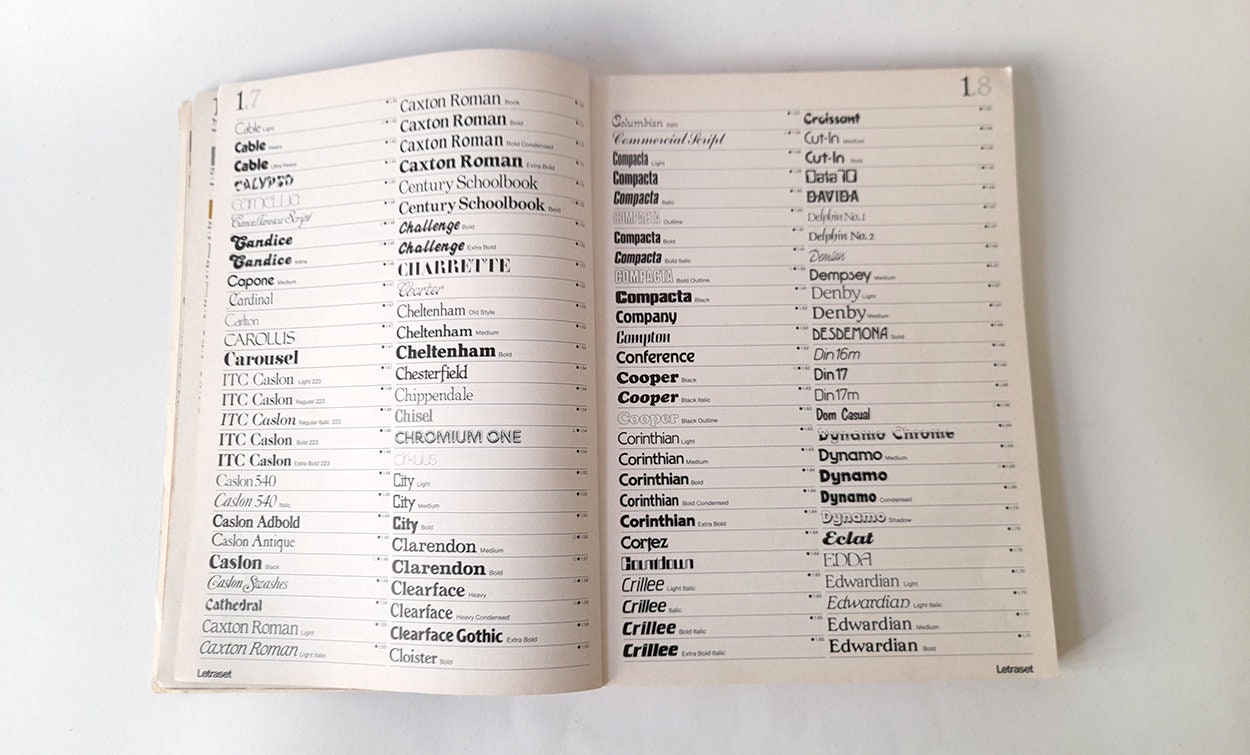 1.7
Cable Light
Cable Heavy
Cable Ultra Heavy
CALYPSO
camellia
Cancellaresca Script
Candice
Candice Inline
Capone Medium
Cardinal
Carlton
CAROLUS
Carousel
ITC Caslon Light 223
ITC Caslon Regular 223
ITC Caslon Regular Italic 223
ITC Caslon Bold 223
ITC Caslon Extra Bold 223
Caslon 540
Caslon 540 Italic
Caslon Adbold
Caslon Antique
Caslon Black
Caslon Swashes
Cathedral
Caxton Roman Light
Caxton Roman Light Italic
Letraset
Caxton Roman Book
Caxton Roman Bold
Caxton Roman Bold Condensed
Caxton Roman Extra Bold
Century Schoolbook
Century Schoolbook Bold
Challenge Bold
Challenge Extra Bold
CHARRETTE
Charter
Cheltenham Old Style
Cheltenham Medium
Cheltenham Bold
Chesterfield
Chippendale
Chisel
CHROMIUM ONE
cirkulus
City Light
City Medium
City Bold
Clarendon Medium
Clarendon Bold
Clearface Heavy
Clearface Heavy Condensed
Clearface Gothic Extra Bold
Cloister Bold
1.8
Columbian Italic
Commercial Script
Compacta Light
Compacta
Compacta Italic
COMPACTA Outline
Compacta Bold
Compacta Bold Italic
COMPACTA Bold Outline
Compacta Black
Company
Compton
Conference
Cooper Black
Cooper Black Italic
Cooper Black Outline
Corinthian Light
Corinthian Medium
Corinthian Bold
Corinthian Bold Condensed
Corinthian Extra Bold
Cortez
Countdown
Crillee Light Italic
Crillee Italic
Crillee Bold Italic
Crillee Extra Bold Italic
Croissant
Cut-In Medium
Cut-In Bold
Data 70
DAVIDA
Delphin No. 1
Delphin No. 2
Demian
Dempsey Medium
Denby Light
Denby Medium
DESDEMONA Solid
Din 16m
Din 17
Din 17m
Dom Casual
Dynamo Chrome
Dynamo Medium
Dynamo
Dynamo Condensed
Dynamo Shadow
Eclat
EDDA
Edwardian Light
Edwardian Light Italic
Edwardian Medium
Edwardian Bold
Letraset